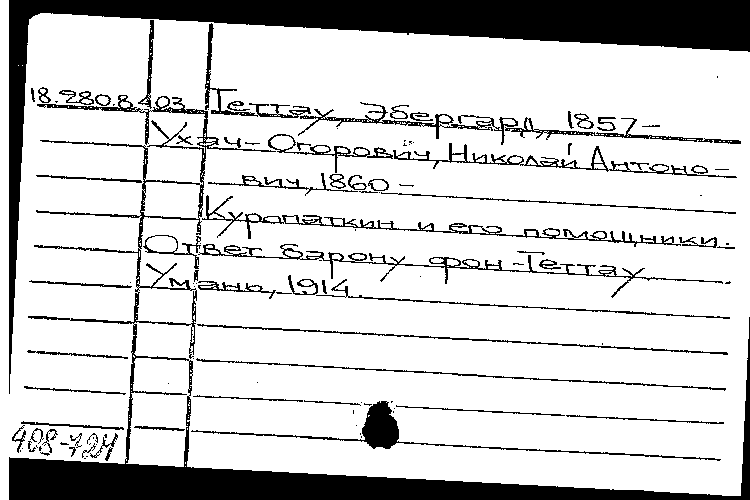 18.280.8.403 Теттау, Эбергард, 1857-
Ухач-Огорович, Николай Антоно-
вич, 1860-
Куропаткин и его помощники.
Ответ барону фон-Теттау
Умань, 1914.
408-724